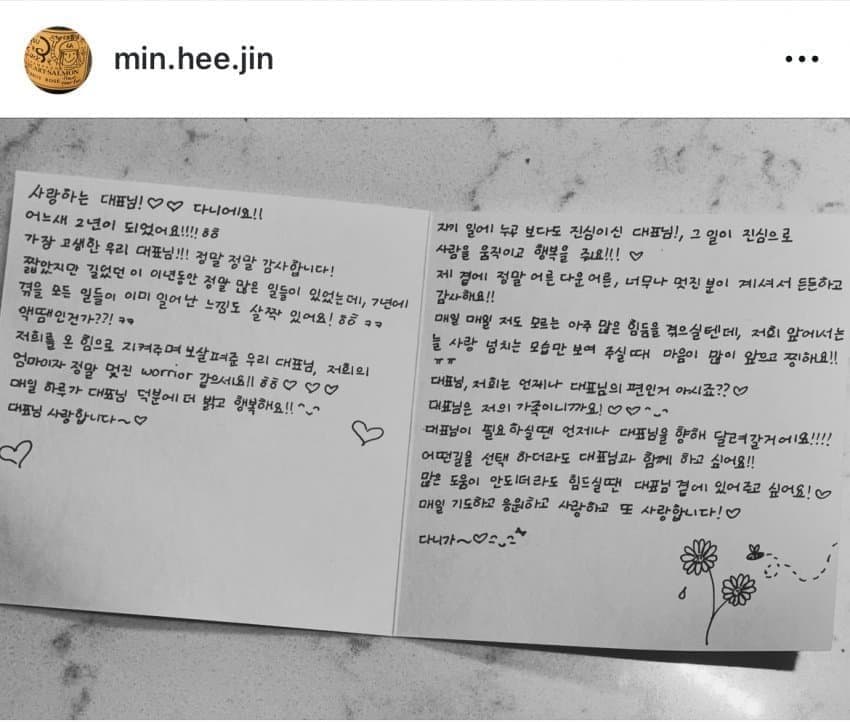 min.hee.jin
사랑하는 대표님!♡♡ 다니에요!!
어느새 2년이 되었어요!!!! ㅎㅎ
가장 고생한 우리 대표님!!! 정말 정말 감사합니다!
짧았지만 길었던 이 이년동안 정말 많은 일들이 있었는데, 7년에
겪을 모든 일들이 이미 일어난 느낌도 살짝 있어요! ㅎㅎ ㅋㅋ
액땜인건가??! ㅋㅋ
저희를 온 힘으로 지켜주며 보살펴준 우리 대표님, 저희의
엄마이자 정말 멋진 worrior 같으세요!! ㅎㅎ♡ ♡ ♡
매일 하루가 대표님 덕분에 더 밝고 행복해요!! ^_^
대표님 사랑합니다~♡
자기 일에 누구 보다도 진심이신 대표님!, 그 일이 진심으로
사람을 움직이고 행복을 줘요!!! ♡
제 곁에 정말 어른 다운 어른, 너무나 멋진 분이 계셔서 든든하고
감사해요!!
매일 매일 저도 모르는 아주 많은 힘듦을 겪으실텐데, 저희 앞에서는
늘 사랑 넘치는 모습만 보여 주실때 마음이 많이 아프고 찡해요!!
ㅠㅠ
대표님, 저희는 언제나 대표님의 편인거 아시죠??♡
대표님은 저의 가족이니까요! ♡♡^_^
대표님이 필요하실땐 언제나 대표님을 향해 달려갈거에요!!!!
어떤길을 선택 하더라도 대표님과 함께 하고 싶어요!!
많은 도움이 안되더라도 힘드실땐 대표님 곁에 있어주고 싶어요!♡
매일 기도하고 응원하고 사랑하고 또 사랑합니다!♡
다니가~♡